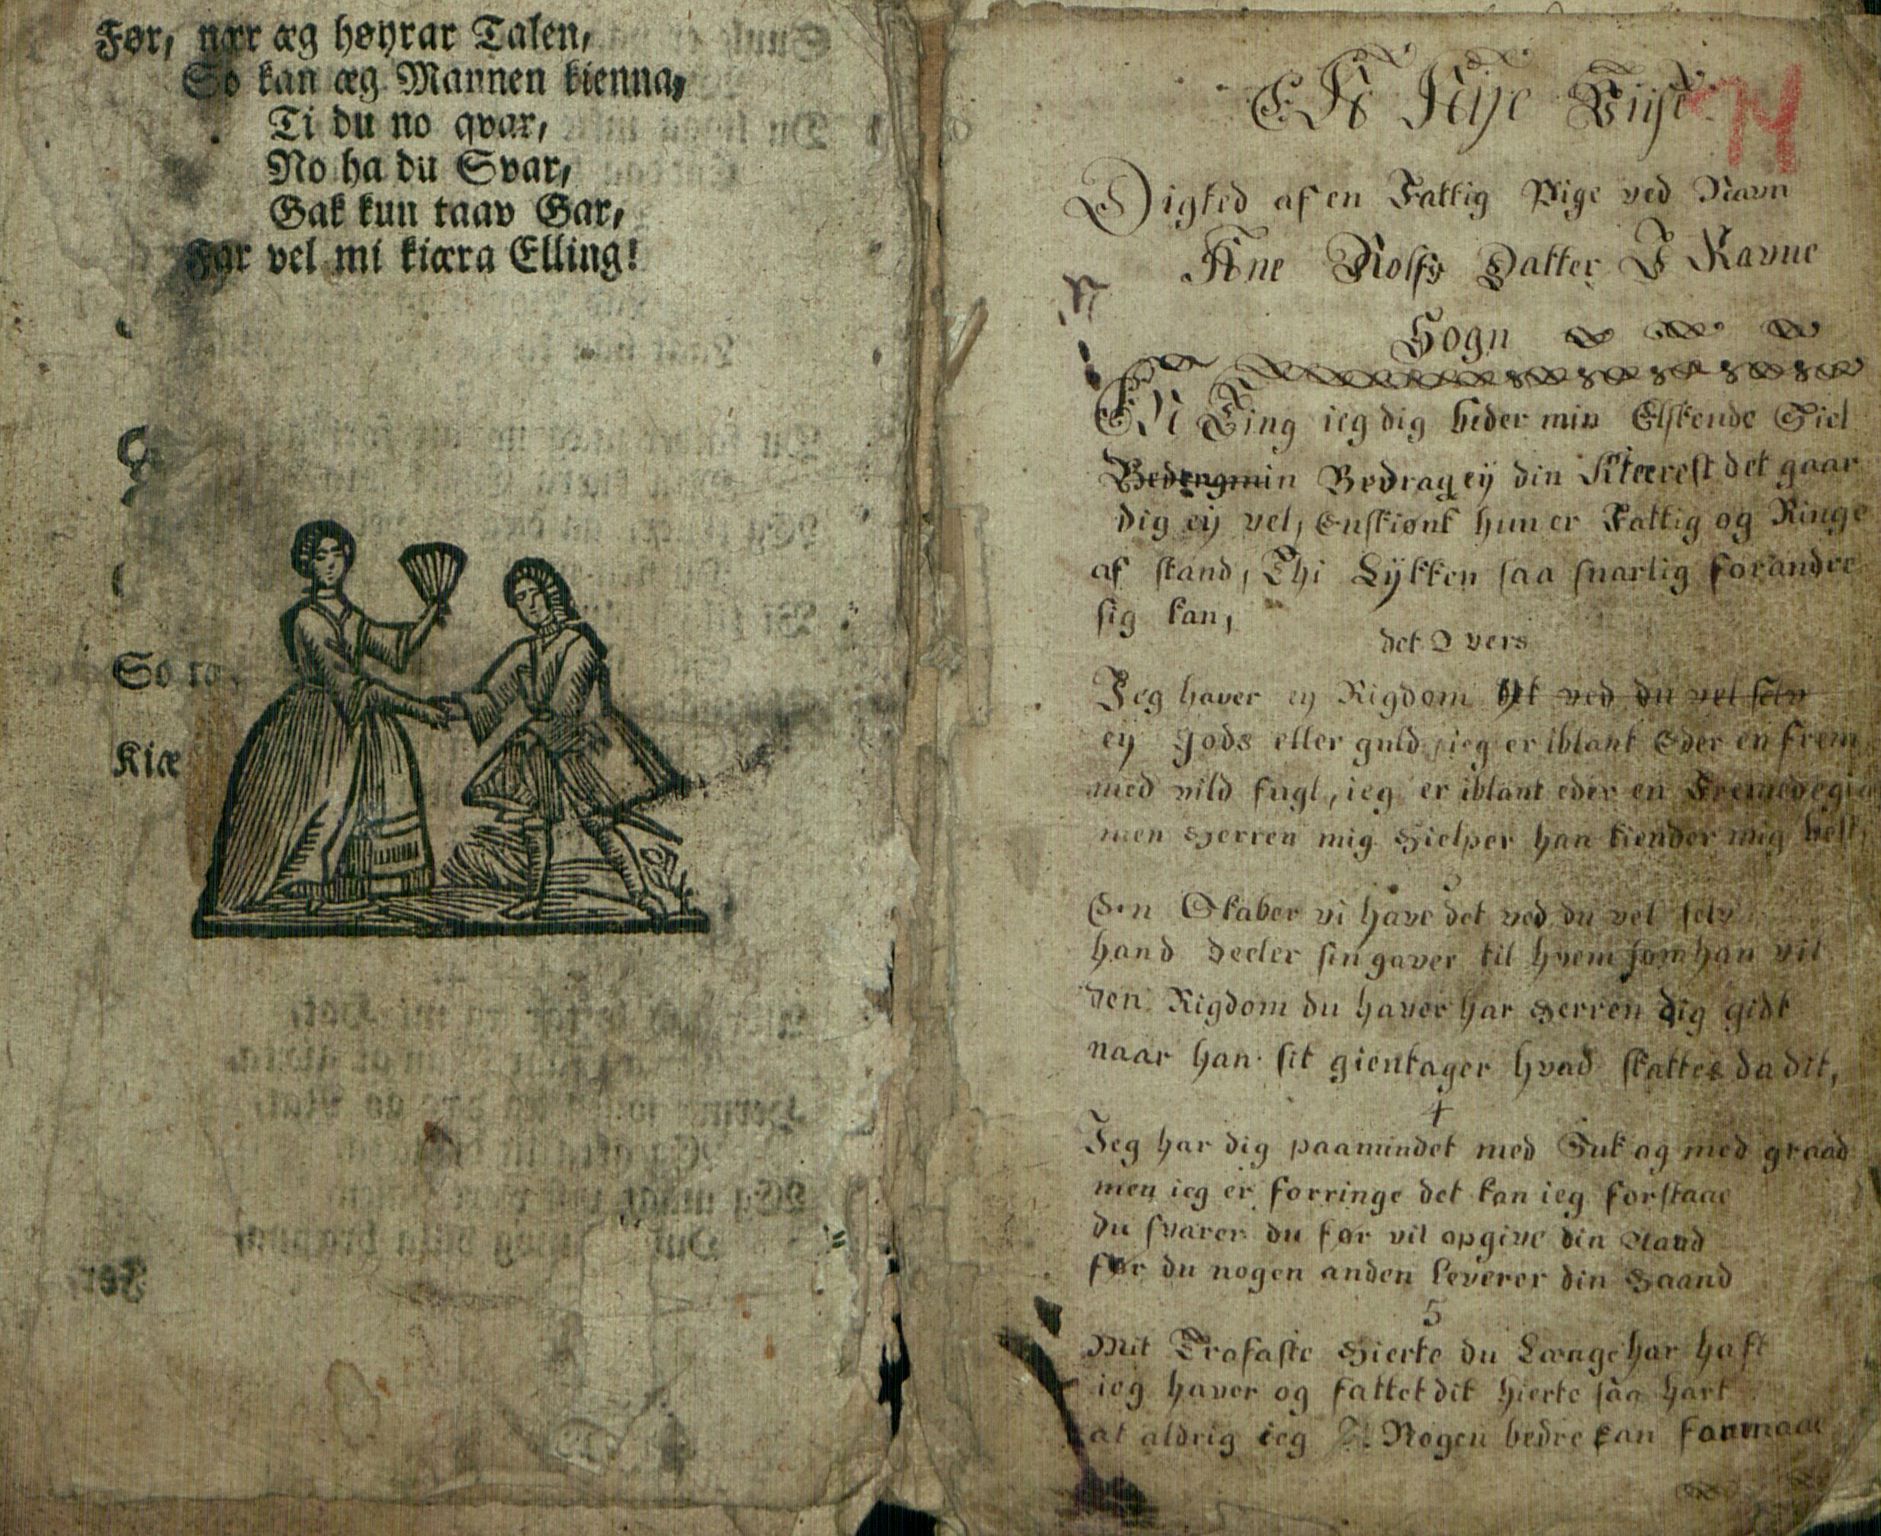 Før, nær æg høyrar Talen,
So kan æg Mannen kienna,
Ti du no qvar,
No ha du Svar,
Gak kun taav Gar,
Far vel mi kiæra Elling!
So
Kiæ
EN Nye Viise
74
Digted af en Fattig Pige ved Navn
Ane Rolfs Datter I Ravne
Sogn
EN Ting ieg dig beder min Elskende Siel
Bedrag ey din Kiæreste det gaar
dig ey vel, Enskiønt hun er Fattig og Ringe
af stand, Thi Lykken saa snarlig forandre
sig kan,
det 2 vers
Jeg haver ey Rigdom det ved du vel selv
ey Gods eller guld ieg er iblant Eder en frem
med vild fugl, ieg er iblant eder en
men Herren mig Hielper han kiender mig best,
Den Skaber vi have det ved du vel selv
hand deeler sin gaver til hvem som han vil
den Rigdom du haver har Herren dig gidt
naar han sit gientager hvad skattes da dit,
4
Jeg har dig paamindet med Suk og med graad
men ieg er forringe det kan ieg forstaae
du svarer du før vil opgive din Aand
før du nogen anden leverer din Haand
5
Mit Trofaste Hierte du Længe har haft
ieg haver og fattet dit hierte saa hart
at aldrig ieg Nogen bedre kan formaae